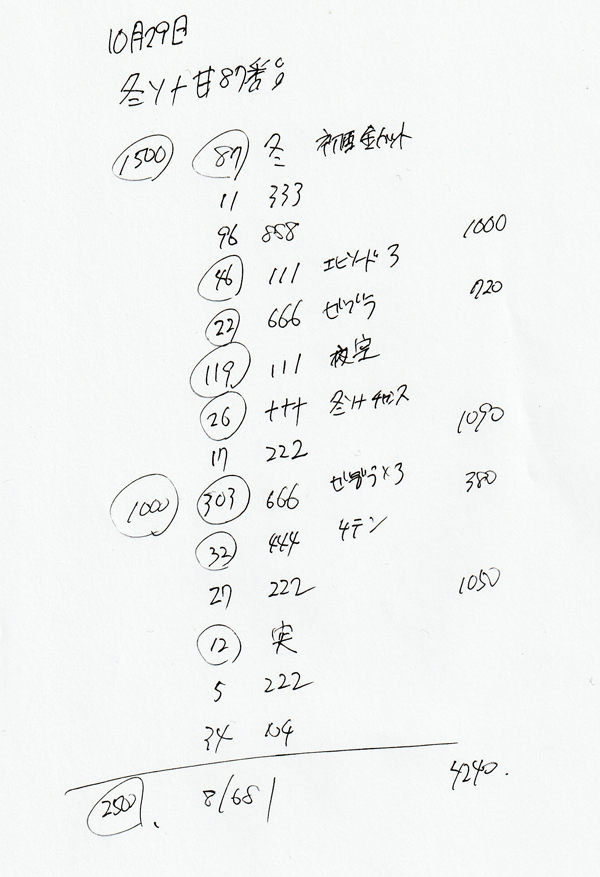 10月29日
冬ソナ甘87番台
1500 87 冬
11 333
96 858 1000
46 111 エピソード3
22 666 ゼブラ 720
119 111 夜空
26 ナナナ 冬ソナチャンス
17 222 1090
1000 303 666 ゼブラ×3 380
32 444 4テン
27 222 1050
12 実
5 222
34
2500 8/681 4240.